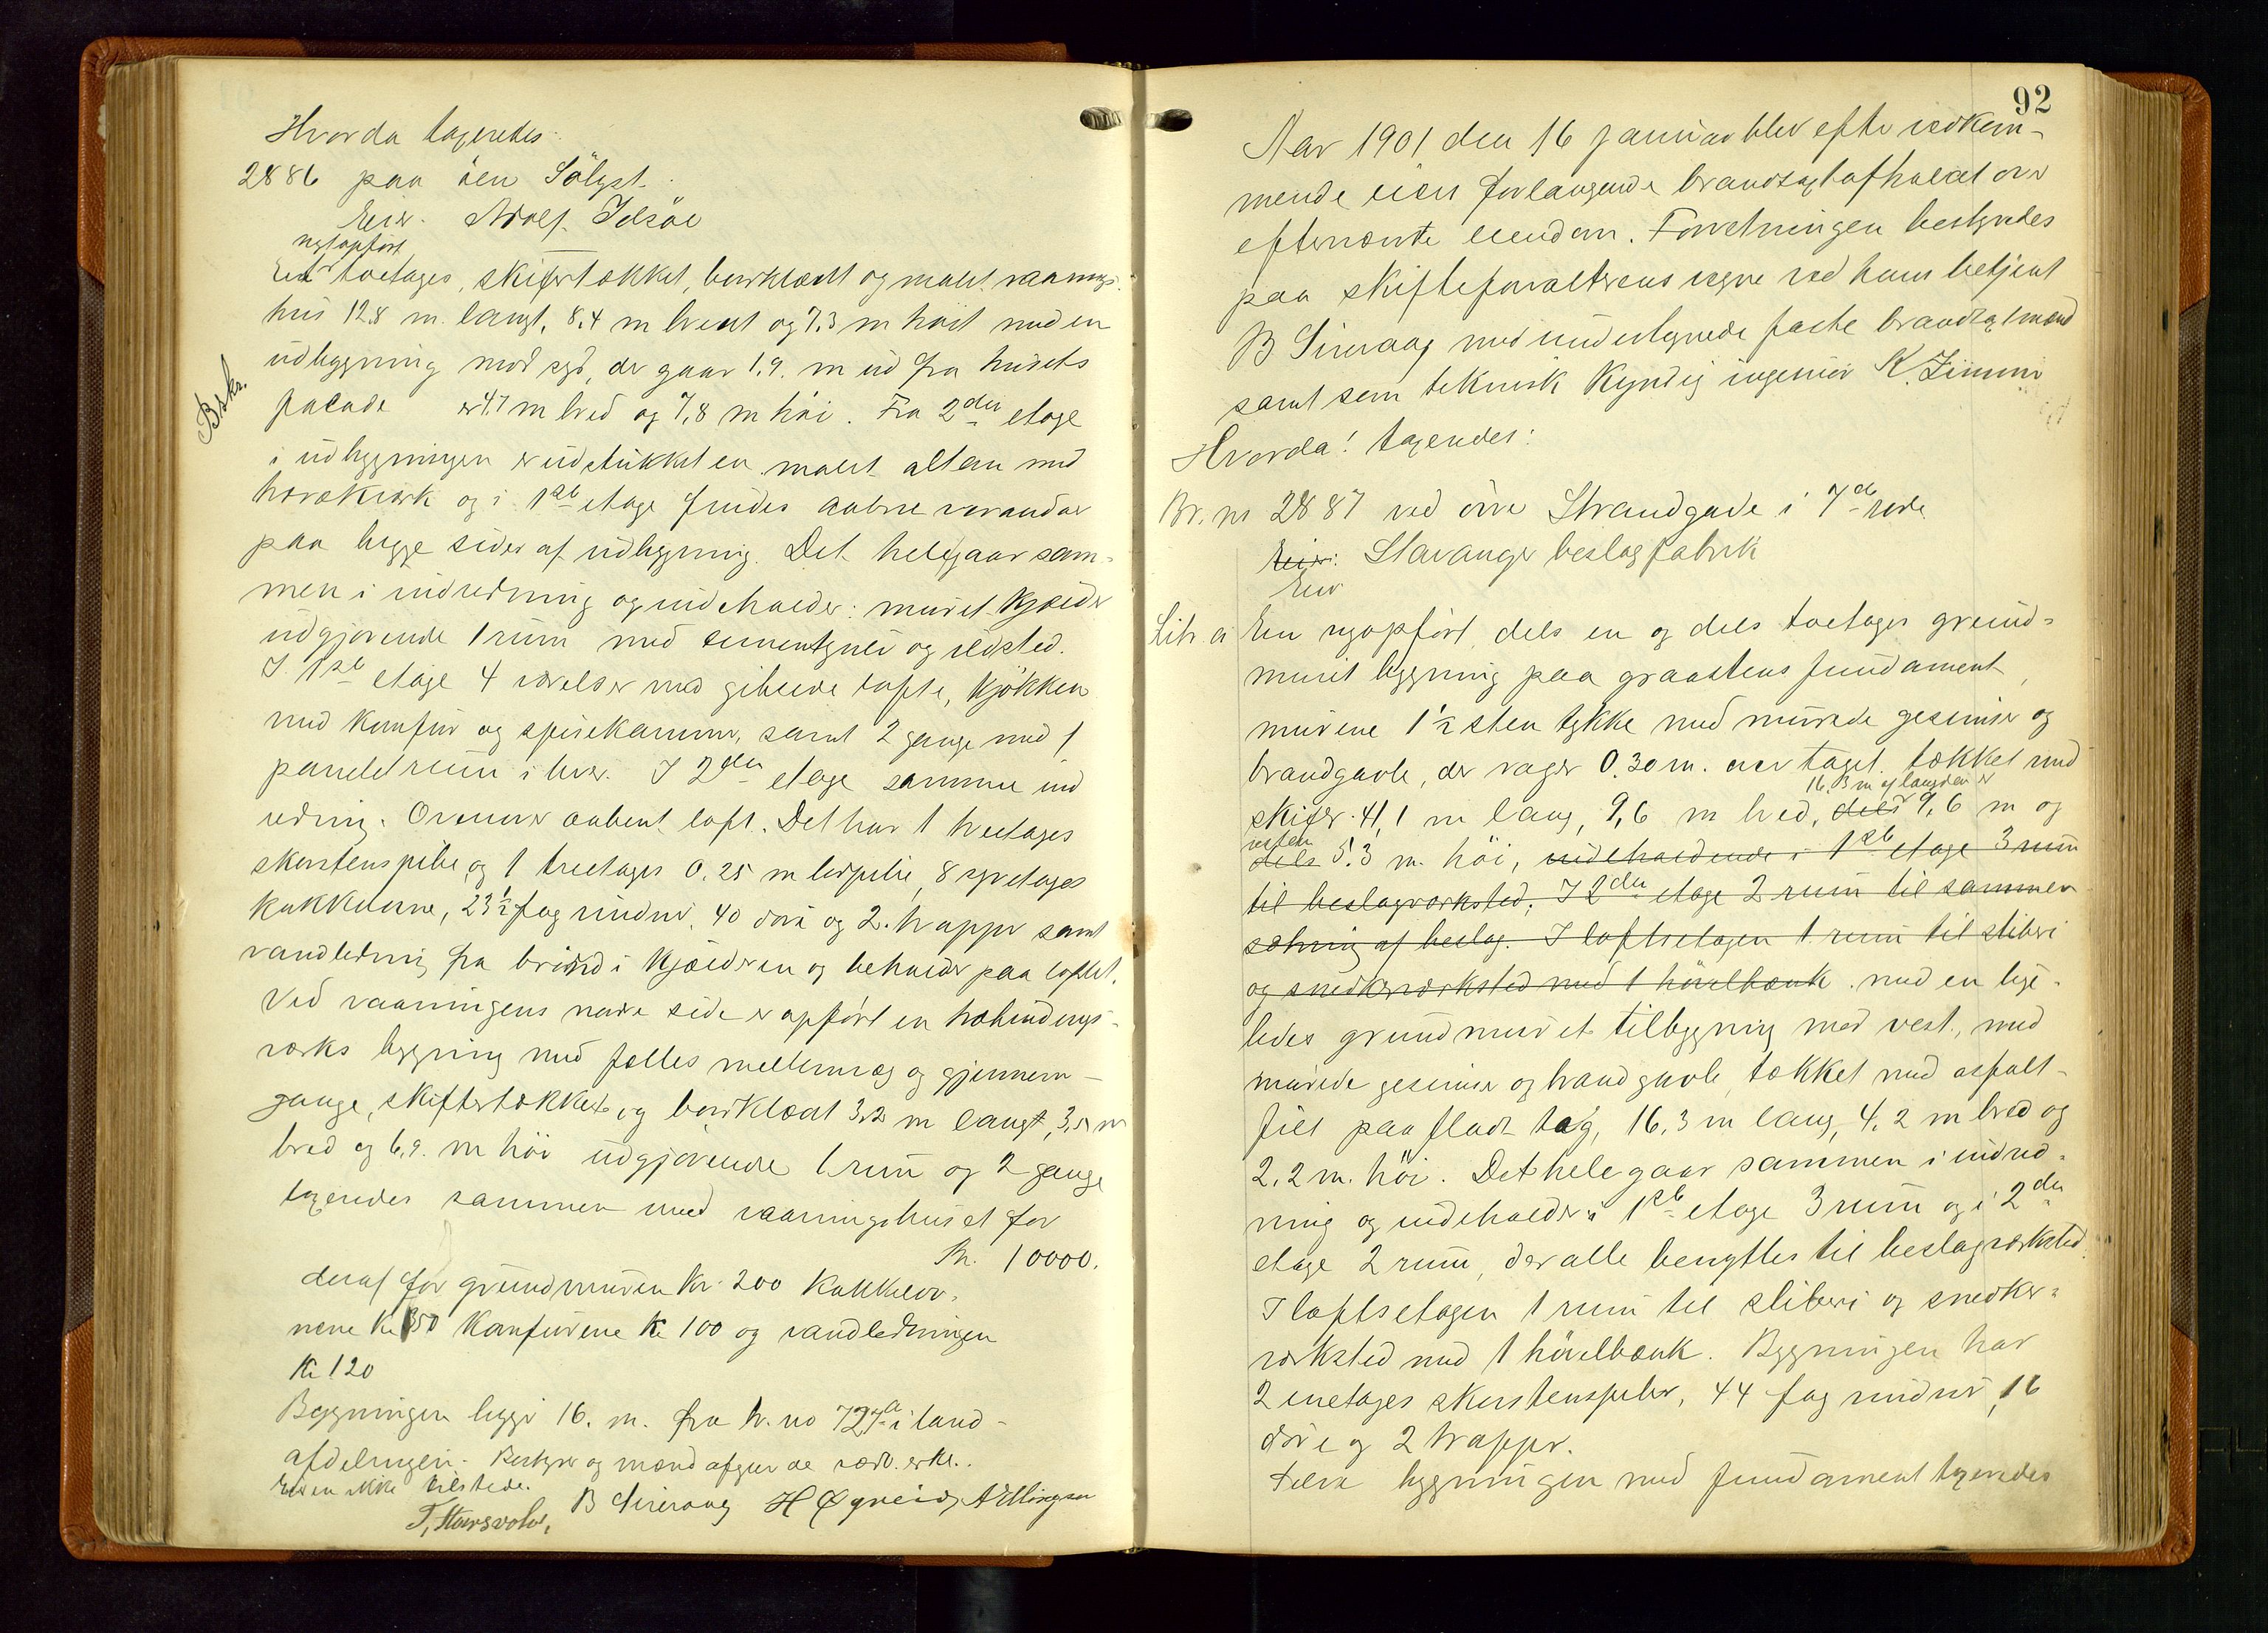 Hvorda taxeredes:
2886 paa öen Sölyst.
Eier. Adolf Idsöe
nyopført
Et toetages, skifertækket, bordklædt og malet vaanings-
hus 12.8 m. langt, 8.4 m bredt og 7.3 m høit med en
udbygning mod syd, der gaar 1.9. m ud fra husets
Bskr.
facade er 4.7 m bred og 7,8 m høi. Fra 2den etage
i udbygningen er udstukket en malet altan med
træværk og i 1ste etage findes aabne verandaer
paa begge sider af udbygning. Det hele gaar sam-
men i indredning og indeholder: muret kjælder
udgjørende 1 rum med cementgulv og ildsted.
I 1ste etage 4 værelser med gibsede lofte, kjøkken
med komfur og spisekammer, samt 2 gange med 1
paneletrum i hver. I 2den etage samme ind
redning. Ovenover aabent loft. Det har 1 treetages
skorstenspibe og 1 treetages 0.25 m lerpibe, 8 syvetages
kakkelovne, 23 1/2 fag vinduer, 40 døre og 2 trapper samt
vandledning fra brönd i kjælderen og beholder paa loftet.
Ved vaaningens nordre side er opført en træbindings-
værks bygning med fælles mellemvæg og gjennem-
gange, skifertækket og bordklædt 3,2 m langt, 3,5 m
bred og 6,9. m høi udgjørende 1 rum og 2 gange
taxeredes sammen med vaaningshuset for
Kr. 10000.
deraf for grundmuren Kr. 200 kakkelov-
nene Kr 350 komfurene Kr 100 og vandledningen
Kr 120
Bygningen ligger 16. m. fra br. no 727a i land-
afdelingen. Bestyrer og mænd afgav de vedb. erkl..
Eieren ikke tilstede.
B Sireraag H Øgreid, A Ellingsen
T, Haarsvolve,
92
Aar 1901 den 16 januar blev efter vedkom-
mende eiers forlangende brandtaxt afholdt over
efternævnte eiendom. Forretningen bestyredes
paa skifteforvalterens vegne ved hans betjent
B Sireraag med undertegnede faste brandtaxtmænd
samt som teknisk kyndig ingeniør K. Zimmer
Hvorda! taxeredes:
Br. no 2887 ved övre Strandgade i 7de rode
Eier: Stavanger beslagfabrik
Eier
Litr a En nyopført, dels en og dels toetages grund-
muret bygning paa graastens fundament,
murene 1 1/2 sten tykke med murede gesimser og
brandgavle, der rager 0.30 m. over taget. tækket med
16,3 m af længden er
skifer. 41,1 m lang, 9,6 m bred, dels 9,6 m og
resten
dels 5.3 m. høi, indeholdende i 1ste etage 3 rum
til beslagværksted, I 2den etage 2 rum til sammen
sætning af beslag. I loftsetagen 1 rum til sliberi
og snedkerværksted med 1 hövelbænk. med en lige-
ledes grundmuret tilbygning mod vest, med
murede gesimser og brandgavle, tækket med asfalt-
filt paa fladt tag, 16.3 m lang, 4,2 m bred og
2,2 m. høi. Det hele gaar sammen i indred-
ning og indeholder i 1ste etage 3 rum og i 2den
etage 2 rum, der alle benyttes til beslagværksted.
I loftsetagen 1 rum til sliberi og snedker-
værksted med 1 hövelbænk. Bygningen har
2 enetages skorstenspiber, 44 fag vinduer, 16
døre og 2 trapper.
bygningen med fundament taxeredes